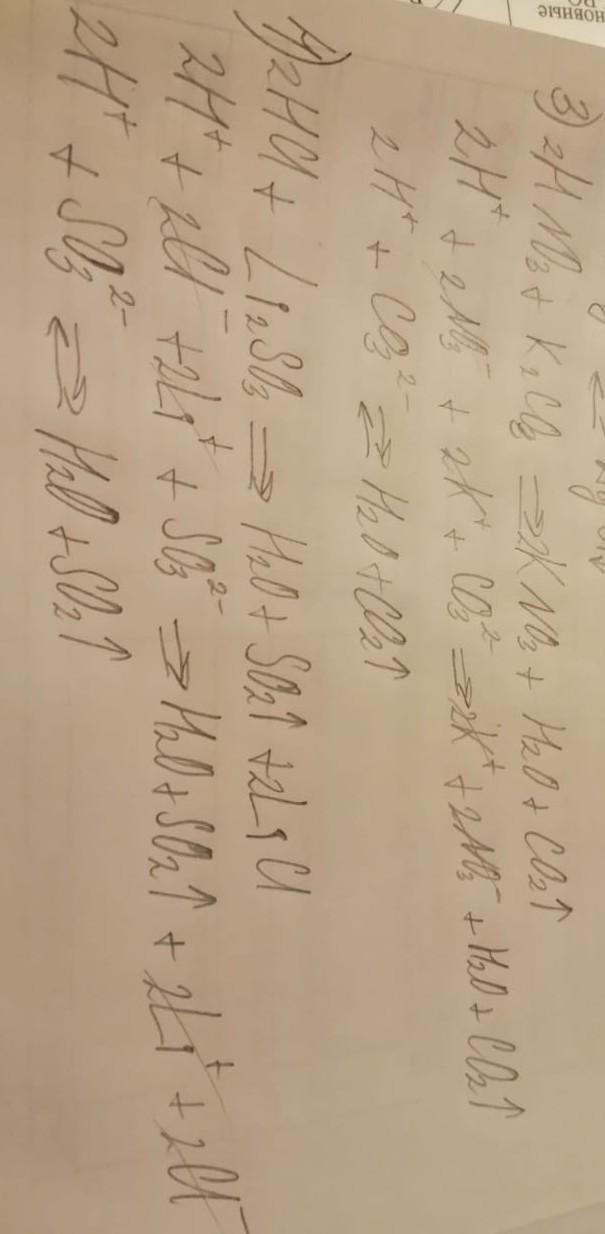 новные
3) 2HNO₃ + K₂CO₃ ⇒ 2KNO₃ + H₂O + CO₂↑
2H⁺ + 2NO₃⁻ + 2K⁺ + CO₃²⁻ ⇒ 2K⁺ + 2NO₃⁻ + H₂O + CO₂↑
2H⁺ + CO₃²⁻ ⇌ H₂O + CO₂↑
4) 2HCl + Li₂SO₃ ⇒ H₂O + SO₂↑ + 2LiCl
2H⁺ + 2Cl⁻ + 2Li⁺ + SO₃²⁻ ⇒ H₂O + SO₂↑ + 2Li⁺ + 2Cl⁻
2H⁺ + SO₃²⁻ ⇌ H₂O + SO₂↑